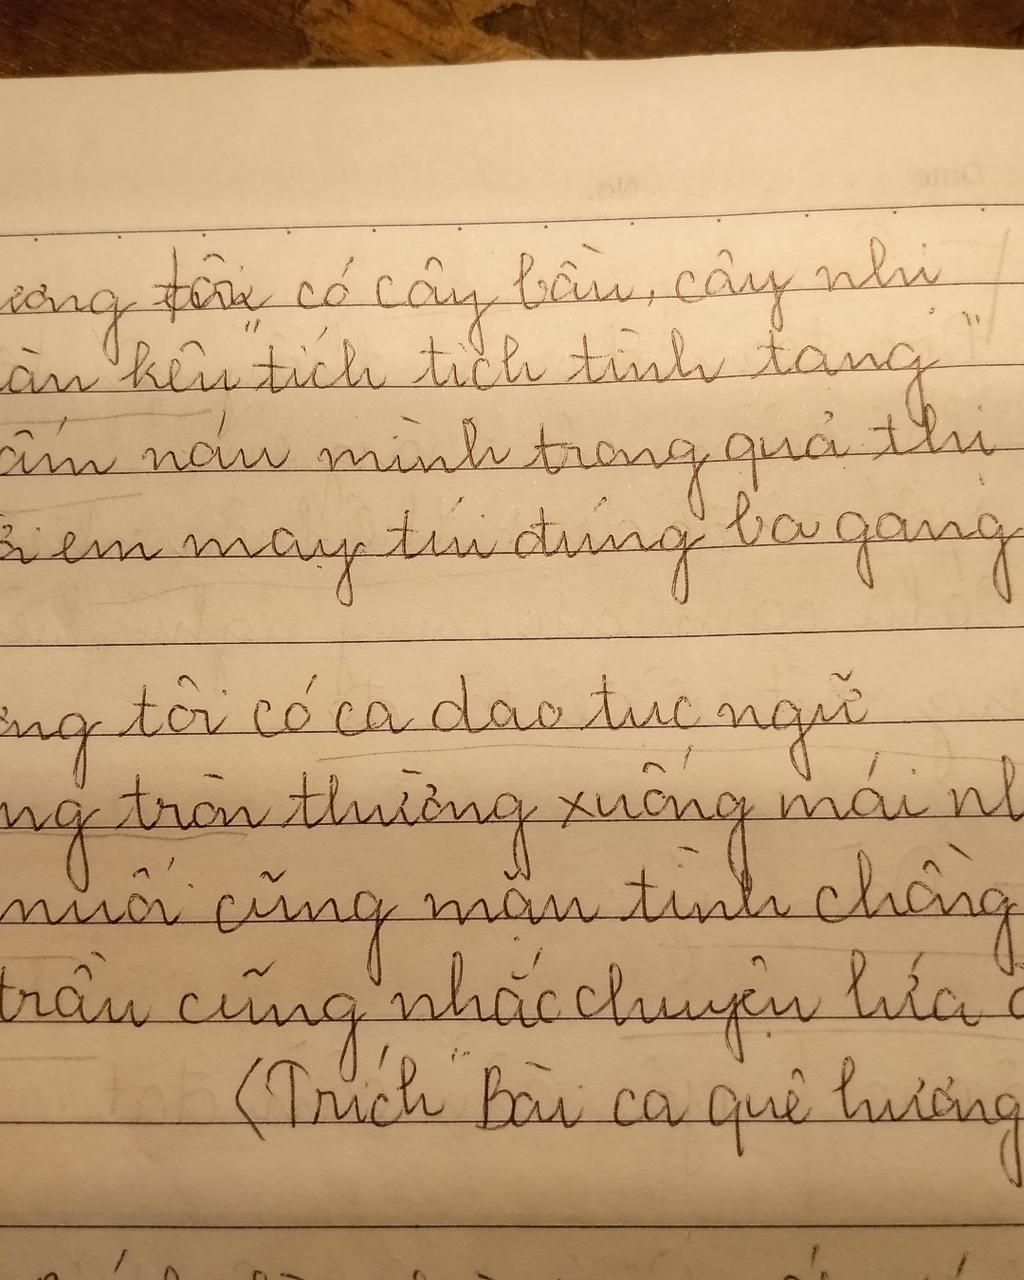 ương tôi có cây bầu, cây nhị
àn kêu "tích tịch tình tang"
ấm náu mình trong quả thị
ời em may túi đúng ba gang
ơng tôi có ca dao tục ngữ
ng tròn thường xuống mái nh
muối cũng mặn tình chồng
trầu cũng nhắc chuyện lứa
(Trích "Bài ca quê hương